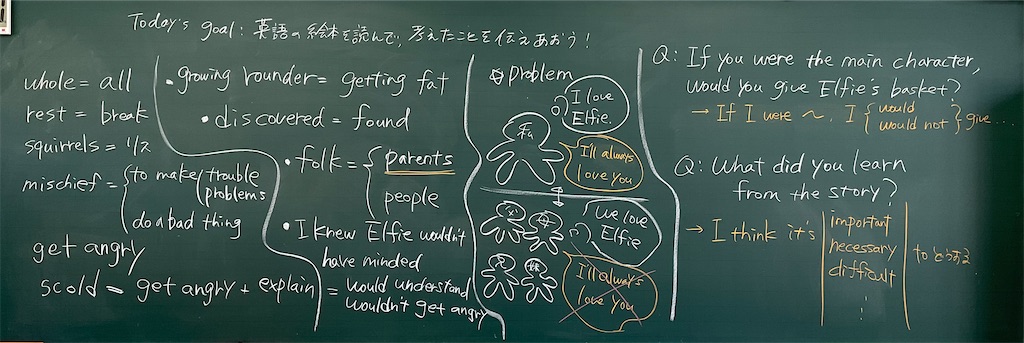 Today's goal: 英語の絵本を読んで、考えたことを伝えあおう!
whole = all
rest = break
squirrels = リス
mischief = to make trouble
problems
do a bad thing
get angry
scold = get angry + explain
• growing rounder = getting fat
• discovered = found
• folk = parents
people
• I knew Elfie wouldn't
have minded
= would understand
wouldn't get angry
problem
I love
Elfie.
私
I'll always
love you
We love
Elfie
I'll always
love you
Q: If you were the main character,
would you give Elfie's basket?
→ If I were ~, I would
would not give ...
Q: What did you learn
from the story?
→ I think it's important
necessary
difficult
to どうする